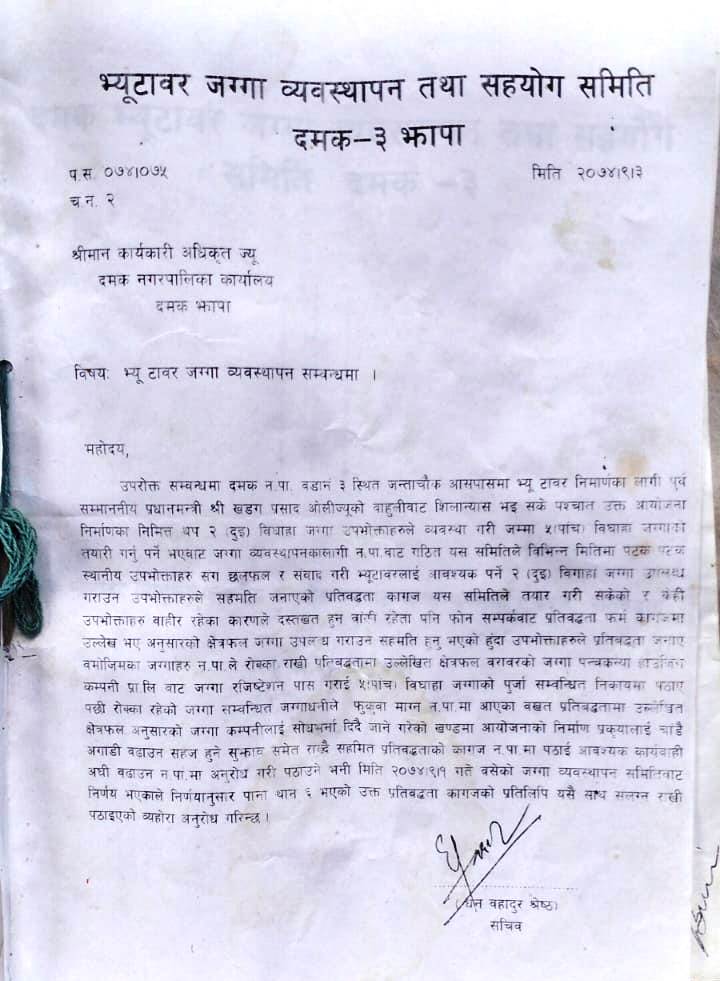 भ्यूटावर जग्गा व्यवस्थापन तथा सहयोग समिति
दमक-३ झापा
प.स. ०७४।०७५
मिति २०७४।९।३
च.न. २
श्रीमान कार्यकारी अधिकृत ज्यू
दमक नगरपालिका कार्यालय
दमक झापा
विषयः भ्यू टावर जग्गा व्यवस्थापन सम्बन्धमा ।
महोदय,
उपरोक्त सम्बन्धमा दमक न.पा. वडानं ३ स्थित जन्ताचौक आसपासमा भ्यू टावर निमार्णका लागी पुर्व
सम्माननीय प्रधानमन्त्री श्री खडग प्रसाद ओलीज्यूको वाहुलीबाट शिलान्यास भइ सके पश्चात उक्त आयोजना
निर्माणका निमित्त थप २ (दुइ) विघाहा जग्गा उपभोक्ताहरुले व्यवस्था गरी जम्मा ५(पांच) विघाहा जग्गाको
तयारी गर्नु पर्ने भएबाट जग्गा व्यवस्थापनकालागी न.पा.बाट गठित यस समितिले विभिन्न मितिमा पटक पटक
स्थानीय उपभोक्ताहरु सग छलफल र संवाद गरी भ्यूटावरलाई आवश्यक पर्ने २ (दुइ) विगाहा जग्गा उपलब्ध
गराउन उपभोक्ताहरुले सहमति जनाएको प्रतिवद्धता कागज यस समितिले तयार गरी सकेको र केही
उपभोक्ताहरु वाहीर रहेका कारणले दस्तखत हुन वांकी रहेता पनि फोन सम्पर्कबाट प्रतिवद्धता फर्म कागजमा
उल्लेख भए अनुसारको क्षेत्रफल जग्गा उपलब्ध गराउन सहमति हुनु भएको हुंदा उपभोक्ताहरुले प्रतिबद्धता जनाए
वमोजिमका जग्गाहरु न.पा.ले रोक्का राखी प्रतिबद्धतामा उल्लेखित क्षेत्रफल वरावरको जग्गा पन्चकन्या हाउजिंग
कम्पनी प्रा.लि बाट जग्गा रजिष्टेशन पास गराई ५(पांच) विघाहा जग्गाको पुर्जा सम्वन्धित निकायमा पठाए
पछी रोक्का रहेको जग्गा सम्वन्धित जग्गाधनीले फुकुवा माग्न न.पा.मा आएका वखत प्रतिबद्धतामा उल्लेखित
क्षेत्रफल अनुसारको जग्गा कम्पनीलाई सोधभर्ना दिदै जाने गरेको खण्डमा आयोजनाको निर्माण प्रकृयालाई चांडै
अगाडी वढाउन सहज हुने सुझाव समेत राख्दै सहमित प्रतिवद्धताको कागज न.पा.मा पठाई आवश्यक कार्यवाही
अघी वढाउन न.पा.मा अनुरोध गरी पठाउने भनी मिति २०७४।९।१ गते वसेको जग्गा व्यवस्थापन समितिवाट
निर्णय भएकाले निर्णयानुसार पाना थान ६ भएको उक्त प्रतिवद्धता कागजको प्रतिलिपि यसै साथ सलग्न राखी
पठाइएको व्यहोरा अनुरोध गरिन्छ ।
(धन वहादुर श्रेष्ठ)
सचिव